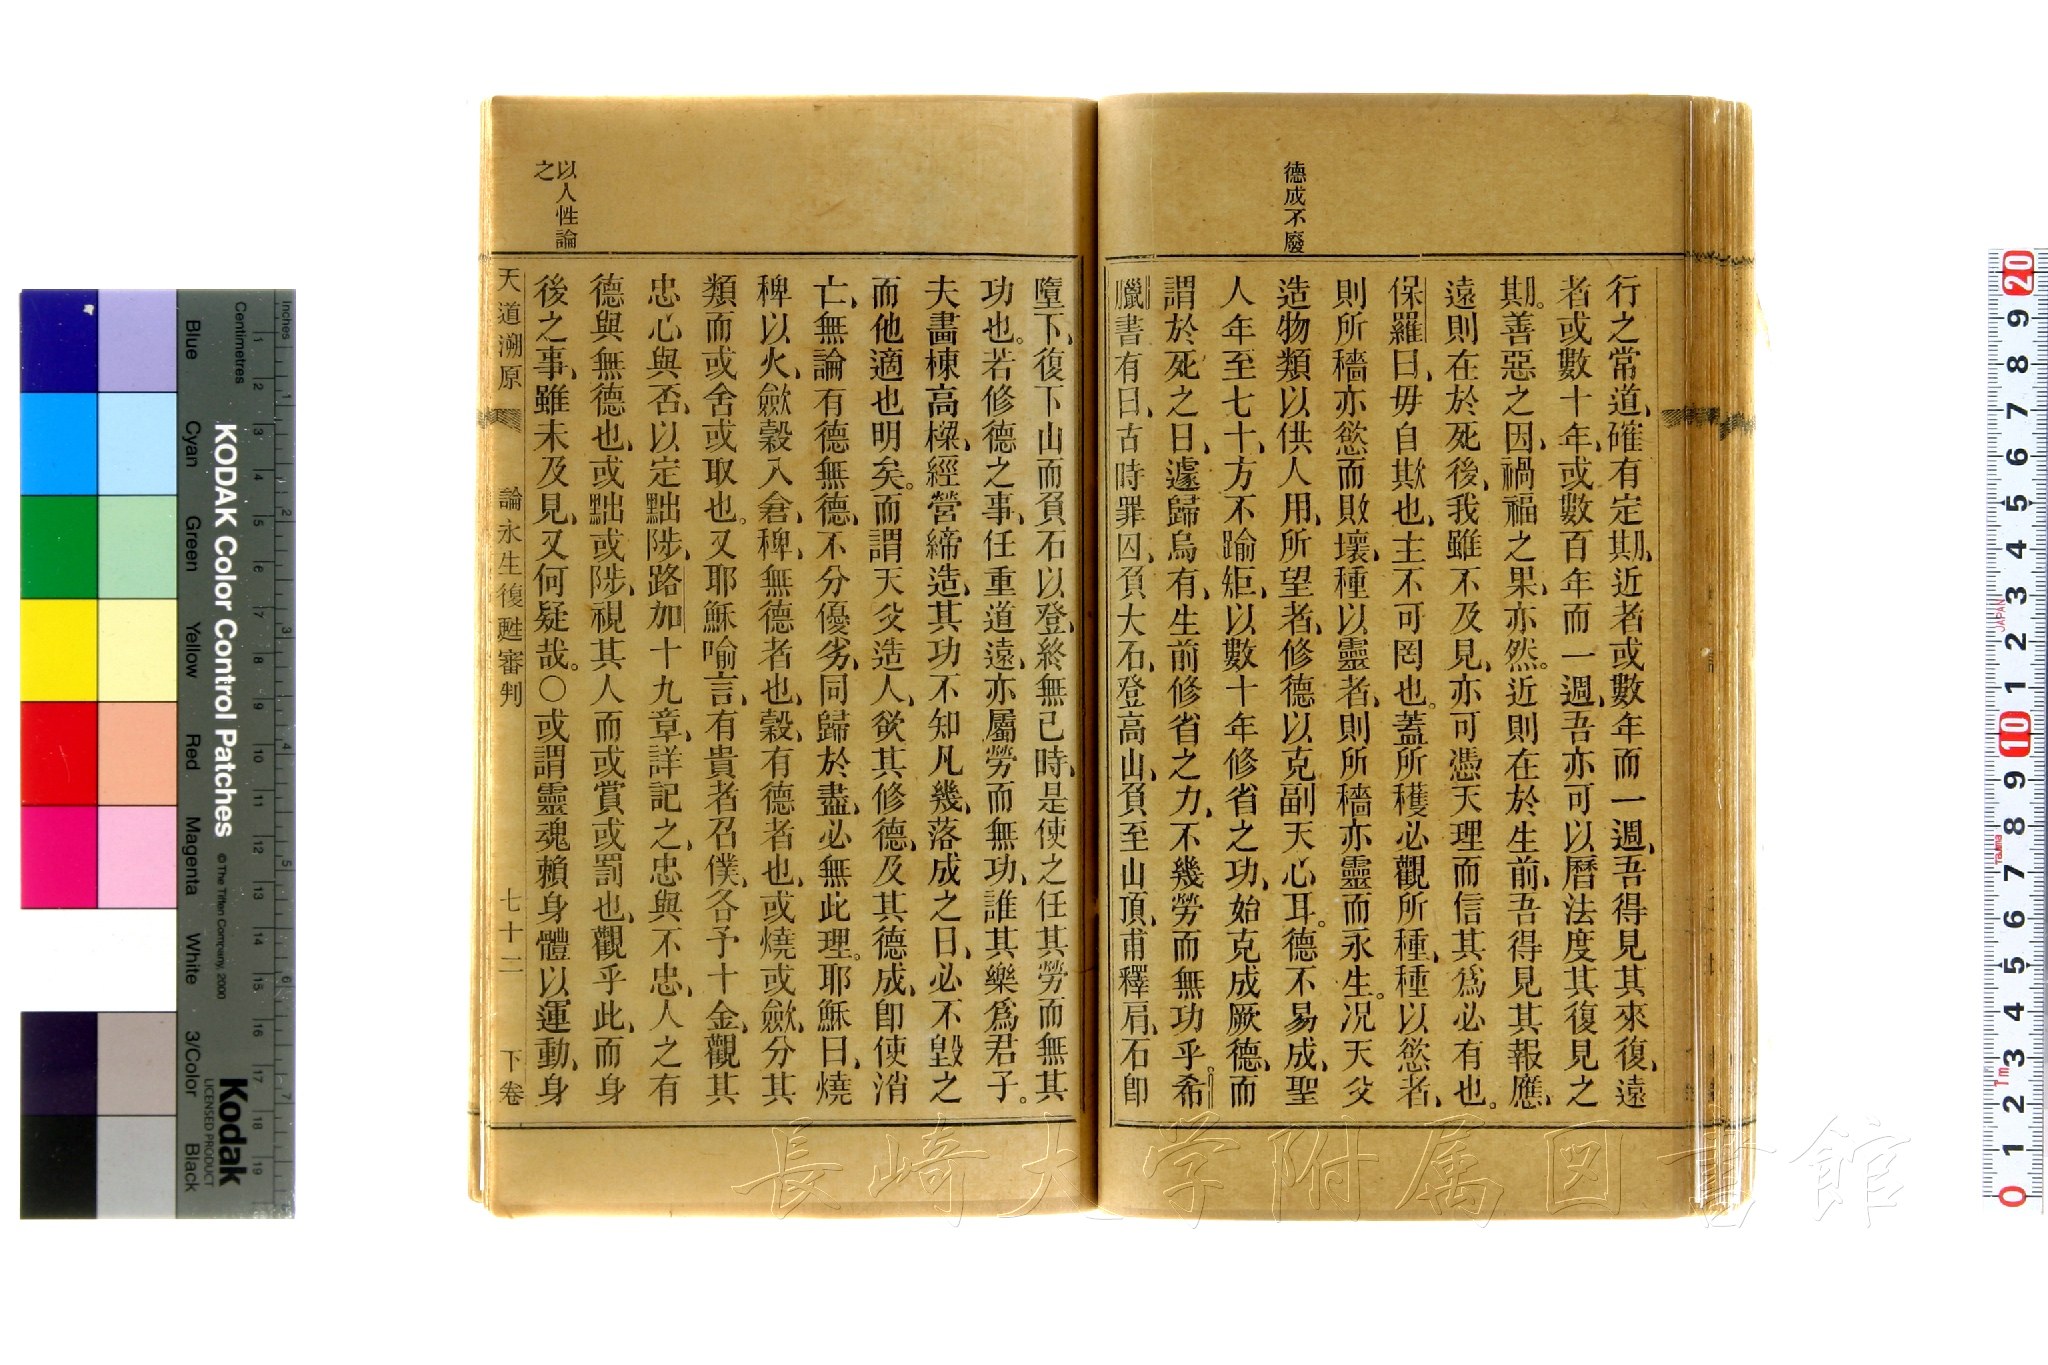 德成不廢
行之常道、確有定期、近者或數年而一週、吾得見其來復、遠
者或數十年、或數百年而一週、吾亦可以曆法度其復見之
期。善惡之因、禍福之果、亦然。近則在於生前、吾得見其報應、
遠則在於死後、我雖不及見、亦可憑天理而信其爲必有也。
保羅曰、毋自欺也、主不可罔也。蓋所穫必觀所種、種以慾者、
則所穡亦慾而敗壞、種以靈者、則所穡亦靈而永生。况天父
造物類以供人用、所望者、修德以克副天心耳。德不易成、聖
人年至七十、方不踰矩、以數十年修省之功、始克成厥德、而
謂於死之日、遽歸烏有、生前修省之力、不幾勞而無功乎。希
臘書有曰、古時罪囚、負大石、登高山、負至山頂、甫釋肩、石卽
墮下、復下山而負石以登、終無已時、是使之任其勞而無其
功也。若修德之事、任重道遠、亦屬勞而無功、誰其樂爲君子。
夫畫棟高樑、經營締造、其功不知凡幾、落成之日、必不毀之
而他適也明矣。而謂天父造人、欲其修德、及其德成、卽使消
亡、無論有德無德、不分優劣、同歸於盡、必無此理。耶穌曰、燒
稗以火、斂穀入倉、稗、無德者也、穀、有德者也、或燒或斂、分其
類而或舍或取也。又耶穌喻言、有貴者召僕、各予十金、觀其
忠心與否、以定黜陟、路加十九章、詳記之、忠與不忠、人之有
德與無德也、或黜或陟、視其人而或賞或罰也、觀乎此、而身
後之事、雖未及見、又何疑哉。○或謂靈魂賴身體以運動、身
以人性論
之
天道溯原 論永生復甦審判 七十二 下卷
長崎大学附属図書館
KODAK Color Control Patches
© The Tiffen Company, 2000
Kodak
LICENSED PRODUCT
Inches
Centimetres
Blue
Cyan
Green
Yellow
Red
Magenta
White
3/Color
Black
1 2 3 4 5 6 7 8 9 10 11 12 13 14 15 16 17 18 19
1 2 3 4 5 6 7
20 9 8 7 6 5 4 3 2 1 10 9 8 7 6 5 4 3 2 1 0
JAPAN